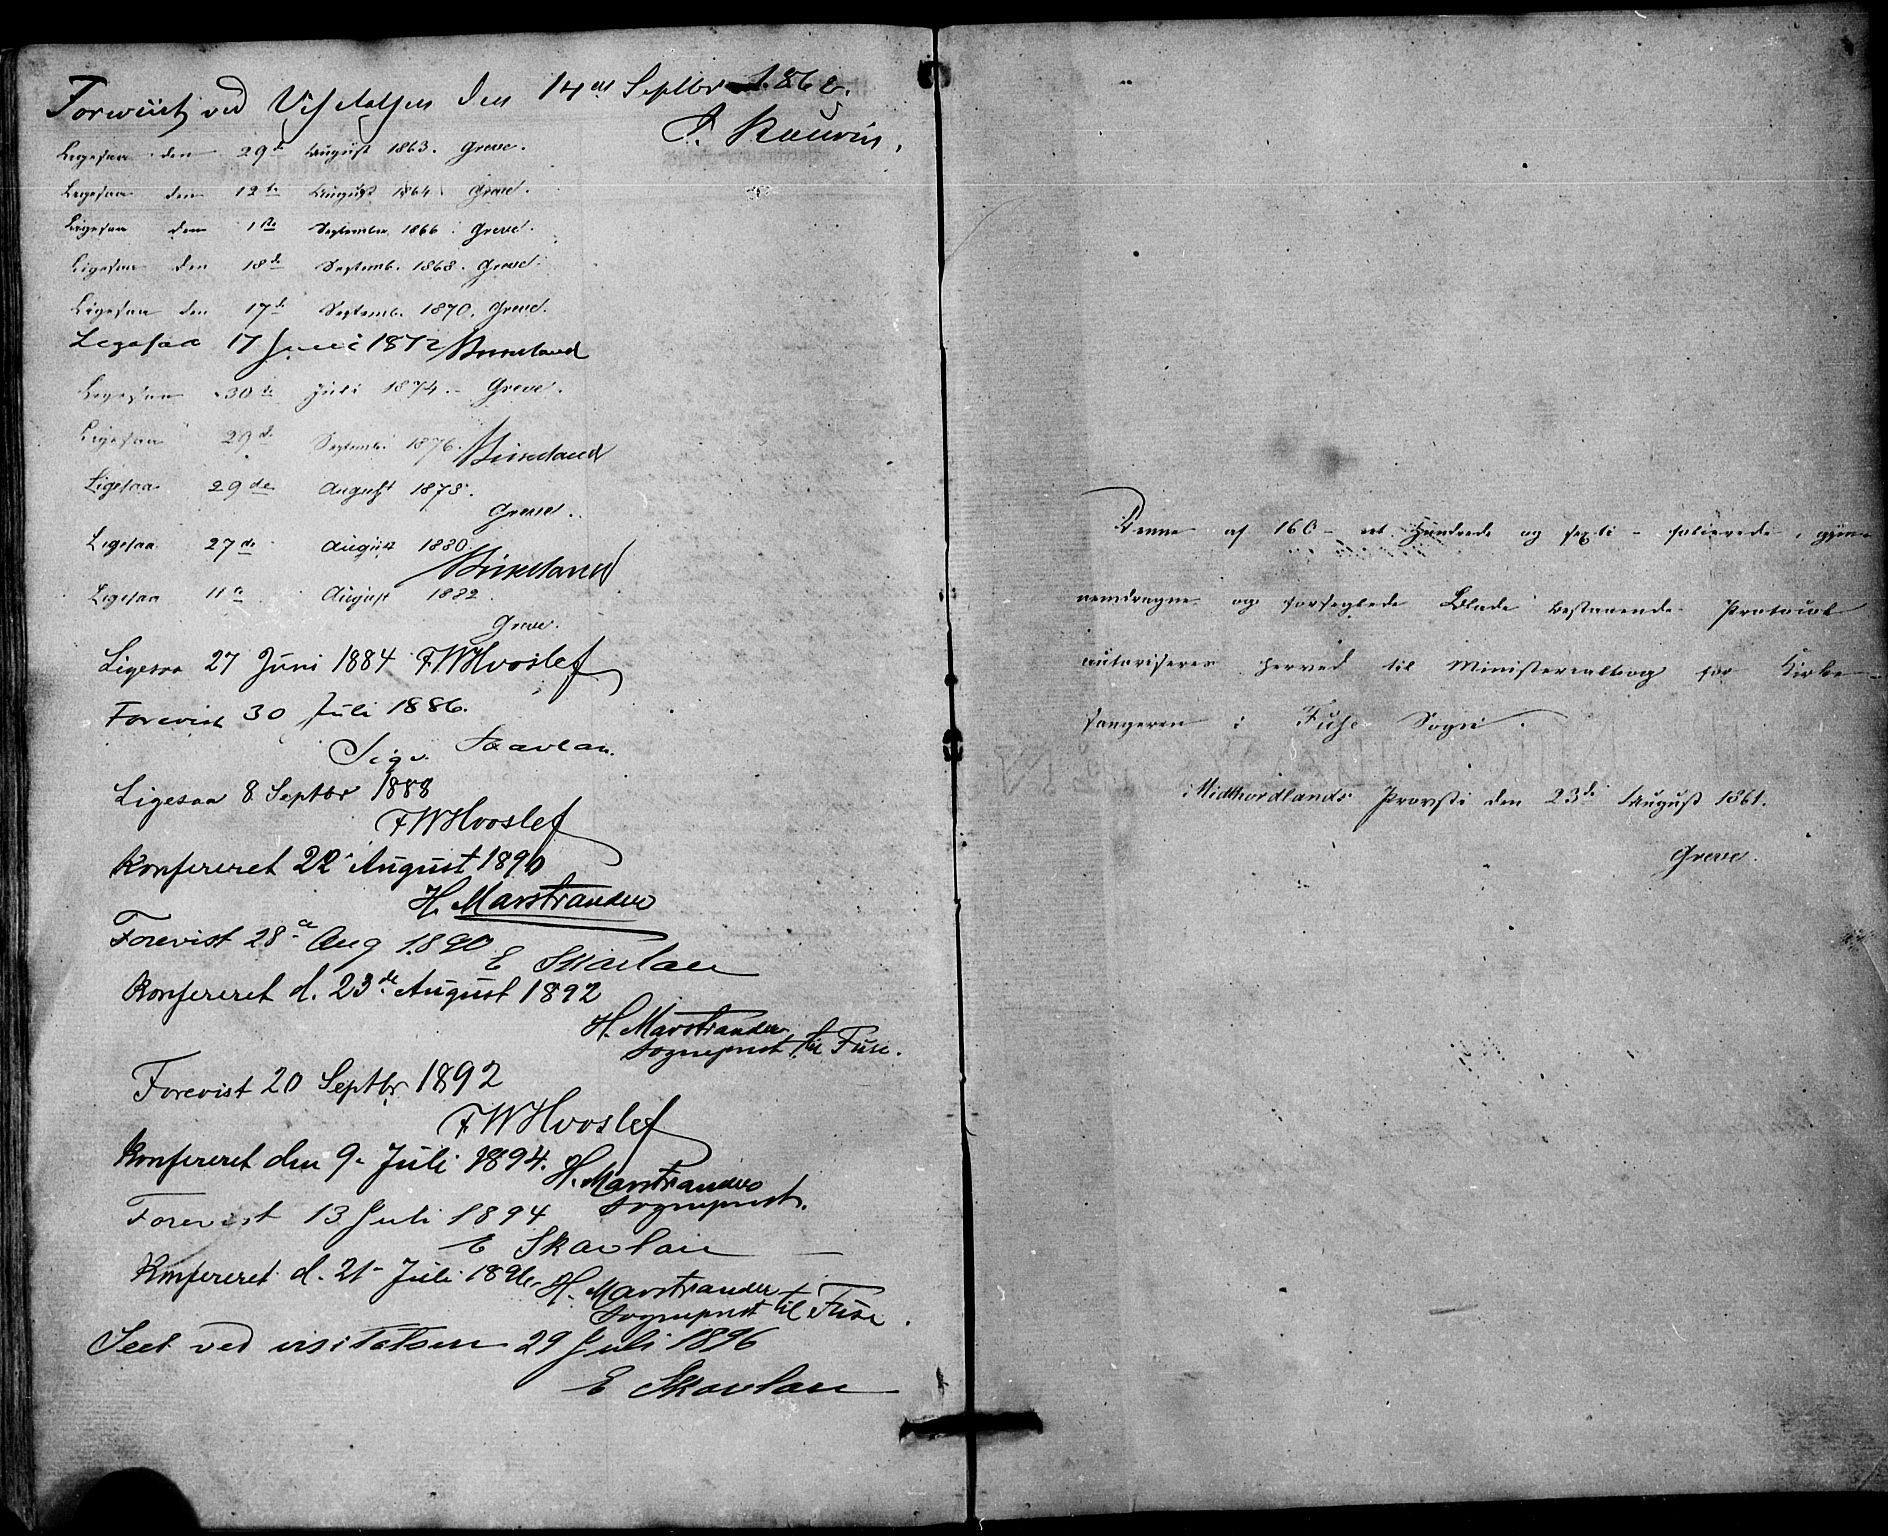 Forevist ved Visitatsen den 14de Septbr
Ligesaa den 29de August 1863. Greve.
Ligesaa den 12te August 1864. Greve.
Ligesaa den 1ste September 1866. Greve.
Ligesaa den 18de Septemb. 1868. Greve.
Ligesaa den 17de Septemb. 1870. Greve.
Ligesaa 17 Juni 1872 Birkeland
Ligesaa 30te Juli 1874. Greve.
Ligesaa 29de Septemb. 1876. Birkeland
Ligesaa 29de August 1878.
Greve.
Ligesaa 27de August 1880.
Birkeland
Ligesaa 11te August 1882.
Greve.
Ligesaa 27 Juni 1884 F W Hvoslef
Forevist 30 Juli 1886.
Skavlan.
Ligesaa 8 Septbr 1888
F W Hvoslef
Konfereret 22 August 1890
H. Marstrander
Forevist 28de Aug 1890
E Skavlan
Konfereret d. 23de August 1892
H. Marstrander
Sogneprest til Fuse.
Forevist 20 Septbr 1892
F W Hvoslef
Konfereret den 9. Juli 1894. H. Marstrander
Sogneprest.
Forevist 13 Juli 1894
E Skavlan
Konfereret d. 21. Juli 1896 H. Marstrander
Sogneprest til Fuse.
Seet ved visitatsen 29 Juli 1896
E Skavlan
Denne af 160 – et Hundrede og sexti – folierede, gjen-
nemdragne og forseglede Blade bestaaende Protocol
autoriseres herved til Ministerialbog for Kirke-
sangeren i Fuse Sogn.
Midthordlands Provsti den 23de August 1861.
Greve.